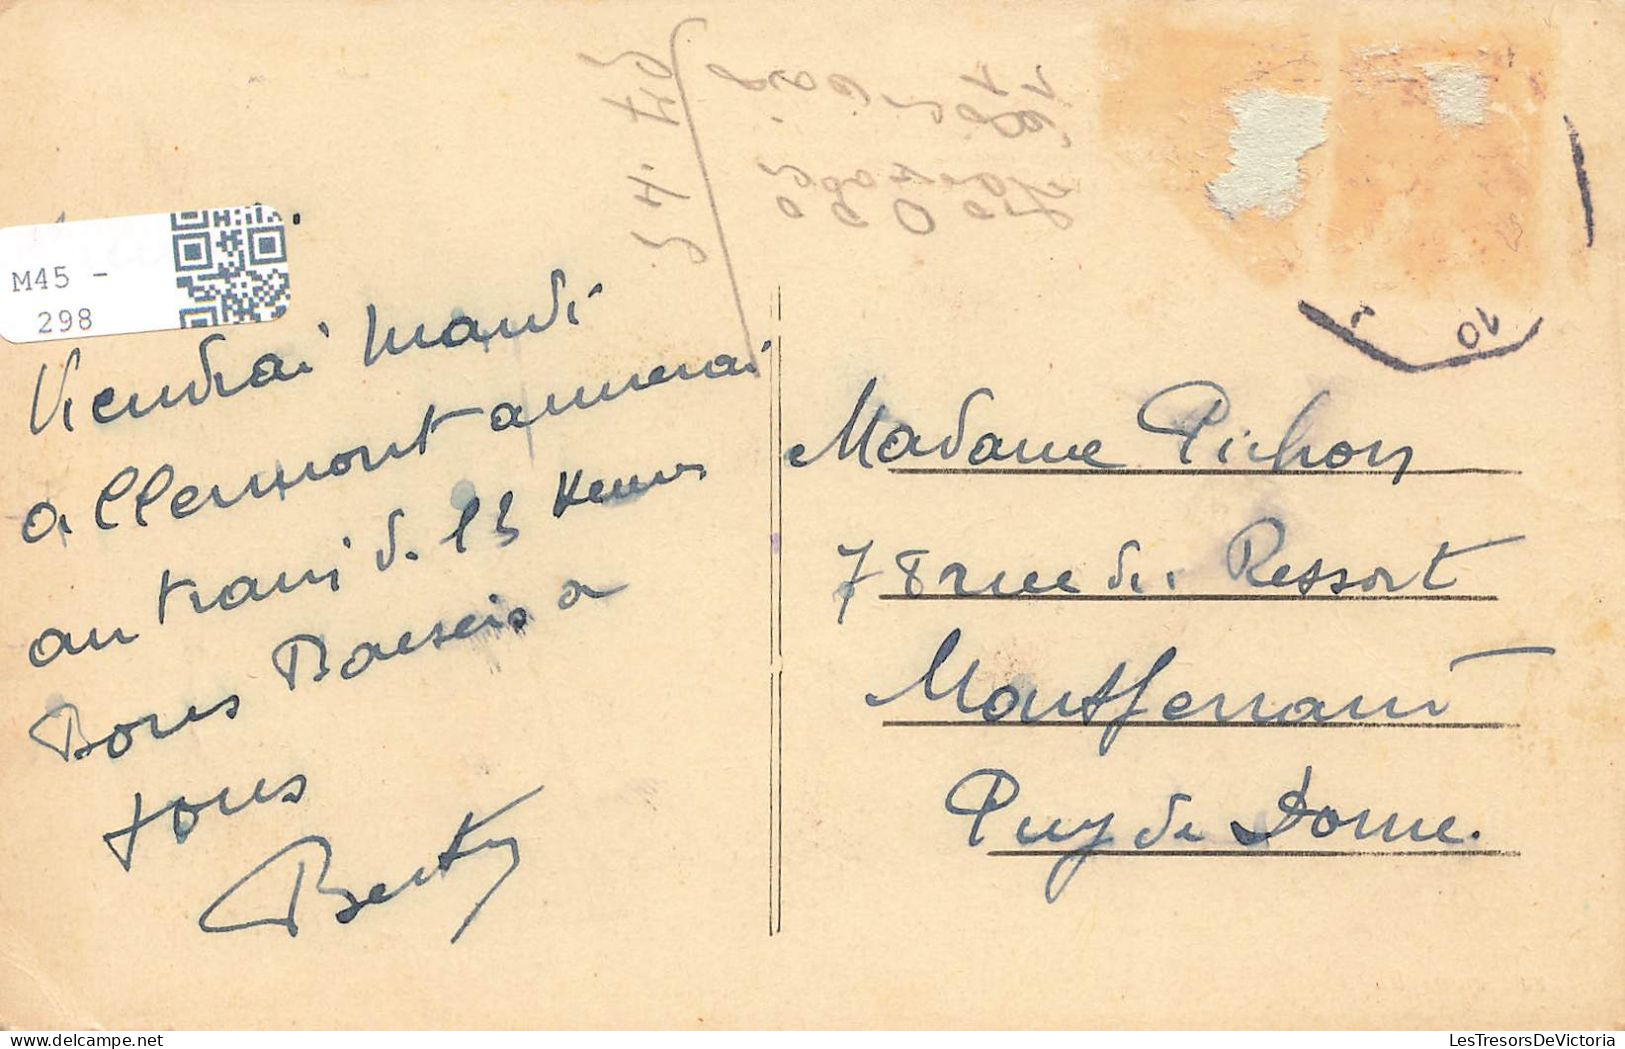 M45 -
298
Viendrai Mardi
a Clermont arriverai
au train de 13 heures
Bons Baisers a
tous
Berty
Madame Pichon
78 rue du Ressort
Montferrand
Puy de Dome.
10
LesTresorsDeVictoria.com